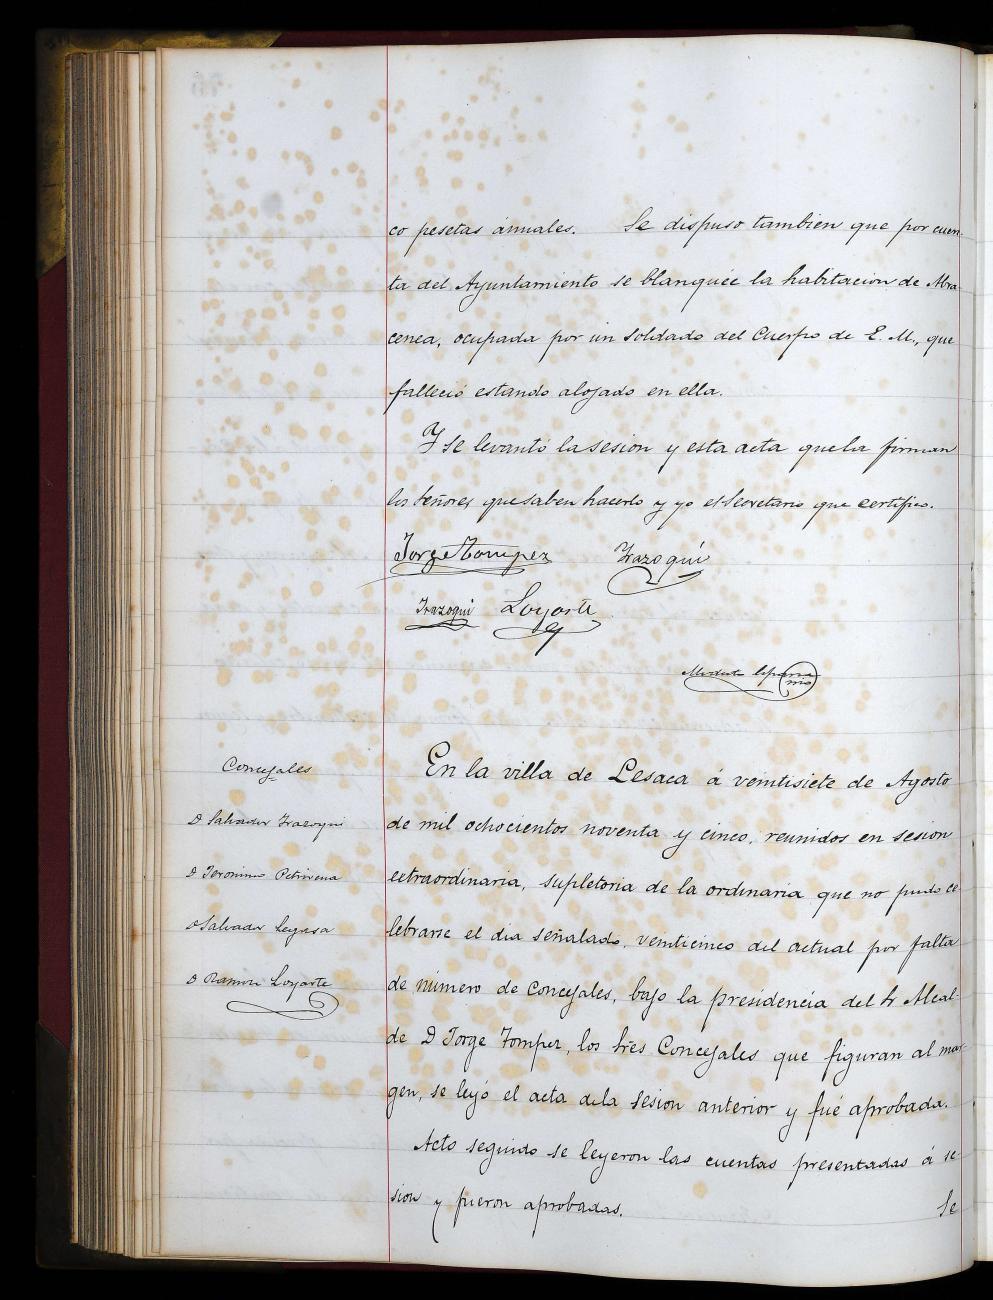 co pesetas ánuales. Se dispuso tambien que por cuen-
ta del Ayuntamiento se blanquée la habitacion de Mra
cenea, ocupada por un soldado del Cuerpo de E. M., que
falleció estando alojado en ella.
Y se levantó la sesion y esta acta que la firman
los Señores que saben hacerlo y yo el Secretario que certifico.
Jorge Tompez Irazoqui
Irazoqui Loyarte
Modesto
Concejales
D Salvador Irazoqui
D Jeronimo Petrirena
D Salvador
D Ramon Loyarte
En la villa de Lesaca á veintisiete de Agosto
de mil ochocientos noventa y cinco, reunidos en sesion
extraordinaria, supletoria de la ordinaria que no pudo ce
lebrarse el dia señalado, veinticinco del actual por falta
de número de Concejales, bajo la presidencia del Sr Alcal-
de D Jorge Tompez, los tres Concejales que figuran al mar-
gen, se leyó el acta de la sesion anterior y fué aprobada.
Acto seguido se leyeron las cuentas presentadas á se-
sion y fueron aprobadas. Se